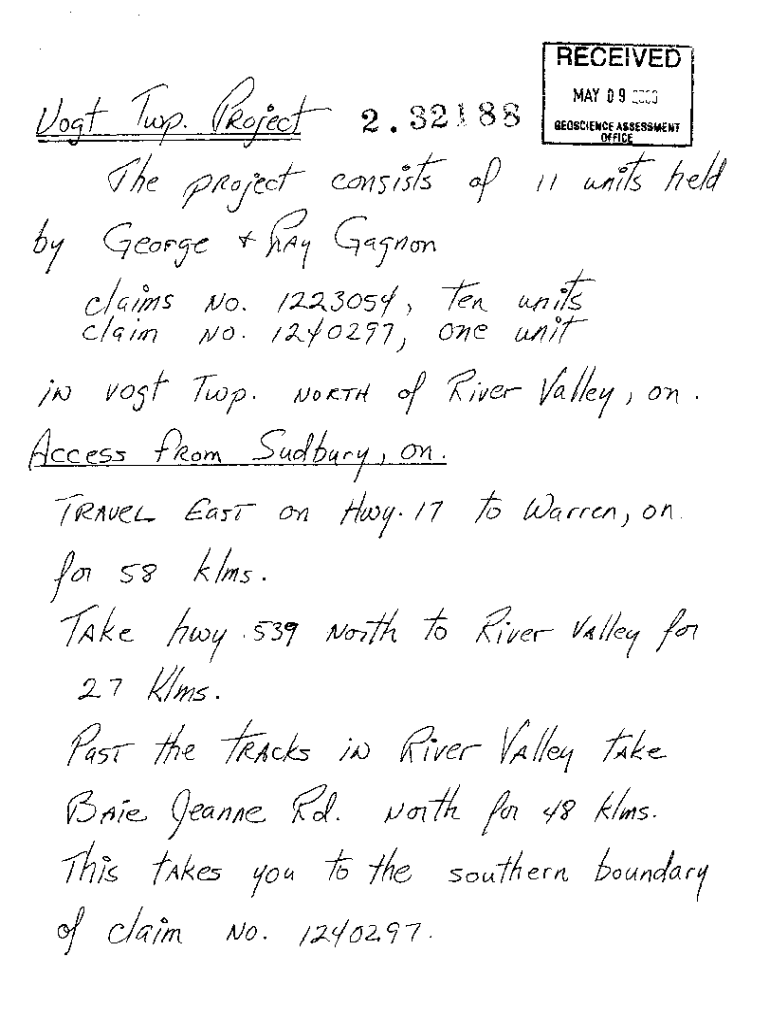 RECEIVED
MAY 09
GEOSCIENCE ASSESSMENT
OFFICE
Vogt Twp. Project 2.32188
The project consists of 11 units held
by George + Ray Gagnon
claims No. 1223054, Ten units
claim No. 1240297, one unit
in Vogt Twp. NORTH of River Valley, on.
Access from Sudbury, on.
TRAVEL EAST on Hwy. 17 to Warren, on.
for 58 klms.
TAke hwy. 539 North to River Valley for
27 Klms.
Past the TRAcks in River VAlley TAke
BAie Jeanne Rd. North for 48 klms.
This takes you to the southern boundary
of claim No. 1240297.